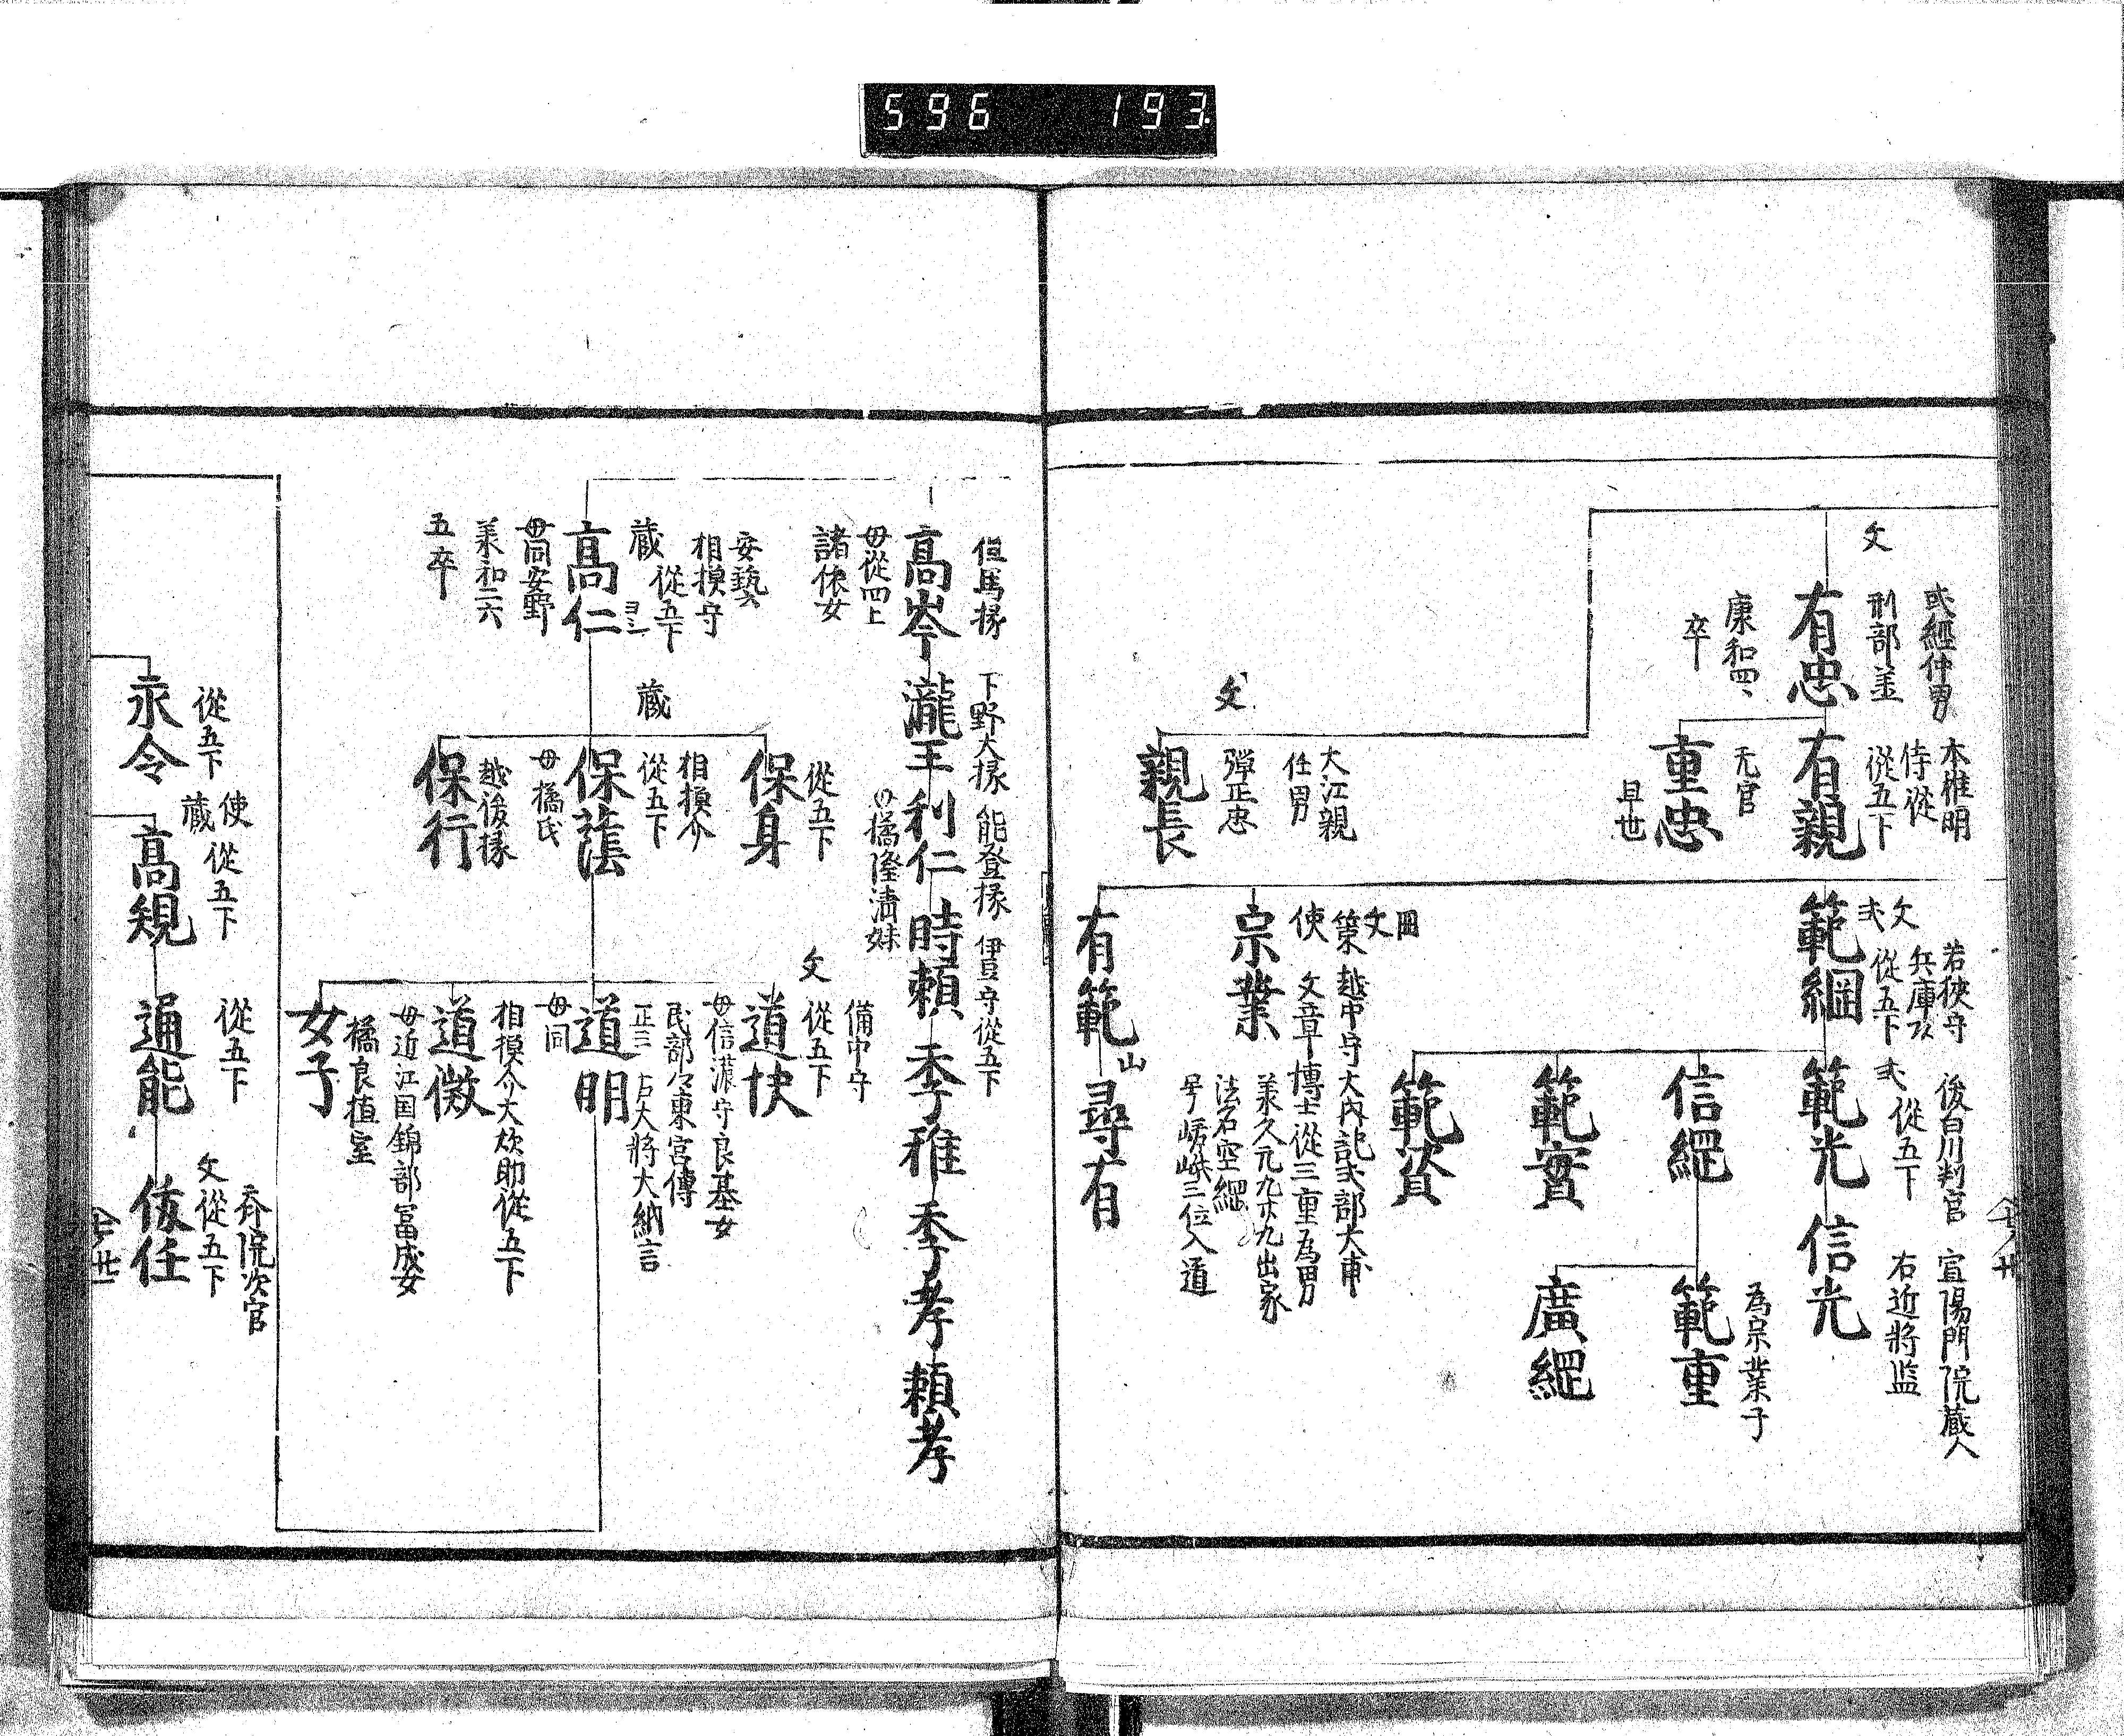 596 193.
式經仲男
刑部丞
文
有忠
康和四、
卒
本惟明
侍従
従五下
有親
无官
重忠
早世
大江親
任男
弾正忠
文
親長
若狭守
兵庫頭
従五下
文
式
範綱
後白川判官
従五下
式
範光
宣陽門院蔵人
右近將监
信光
信綱
為宗業子
範重
廣綱
範實
範資
圖
文
策
使
越中守大內記式部大甫
文章博士従三重為男
宗業
承久元九廿九出家
法名空綱
号嵯峨三位入道
有範
山
尋有
但馬掾
高岑
母従四上
諸依女
下野大掾
瀧王
能登掾
利仁
母橘隆清妹
伊豆守従五下
時頼
季稚
季孝
頼孝
安藝
相摸守
従五下
蔵
高仁
母同安野
承和二六
五卒
従五下
保身
相摸介
従五下
蔵
保蔭
母橘氏
越後掾
保行
備中守
従五下
文
道快
母信濃守良基女
民部々東宮傳
正三 右大將大納言
道明
母同
相摸介大炊助従五下
道微
母近江国錦部冨成女
橘良植室
女子
従五下
永令
使
蔵
従五下
高規
従五下
通能
斎院次官
従五下
文
佐任